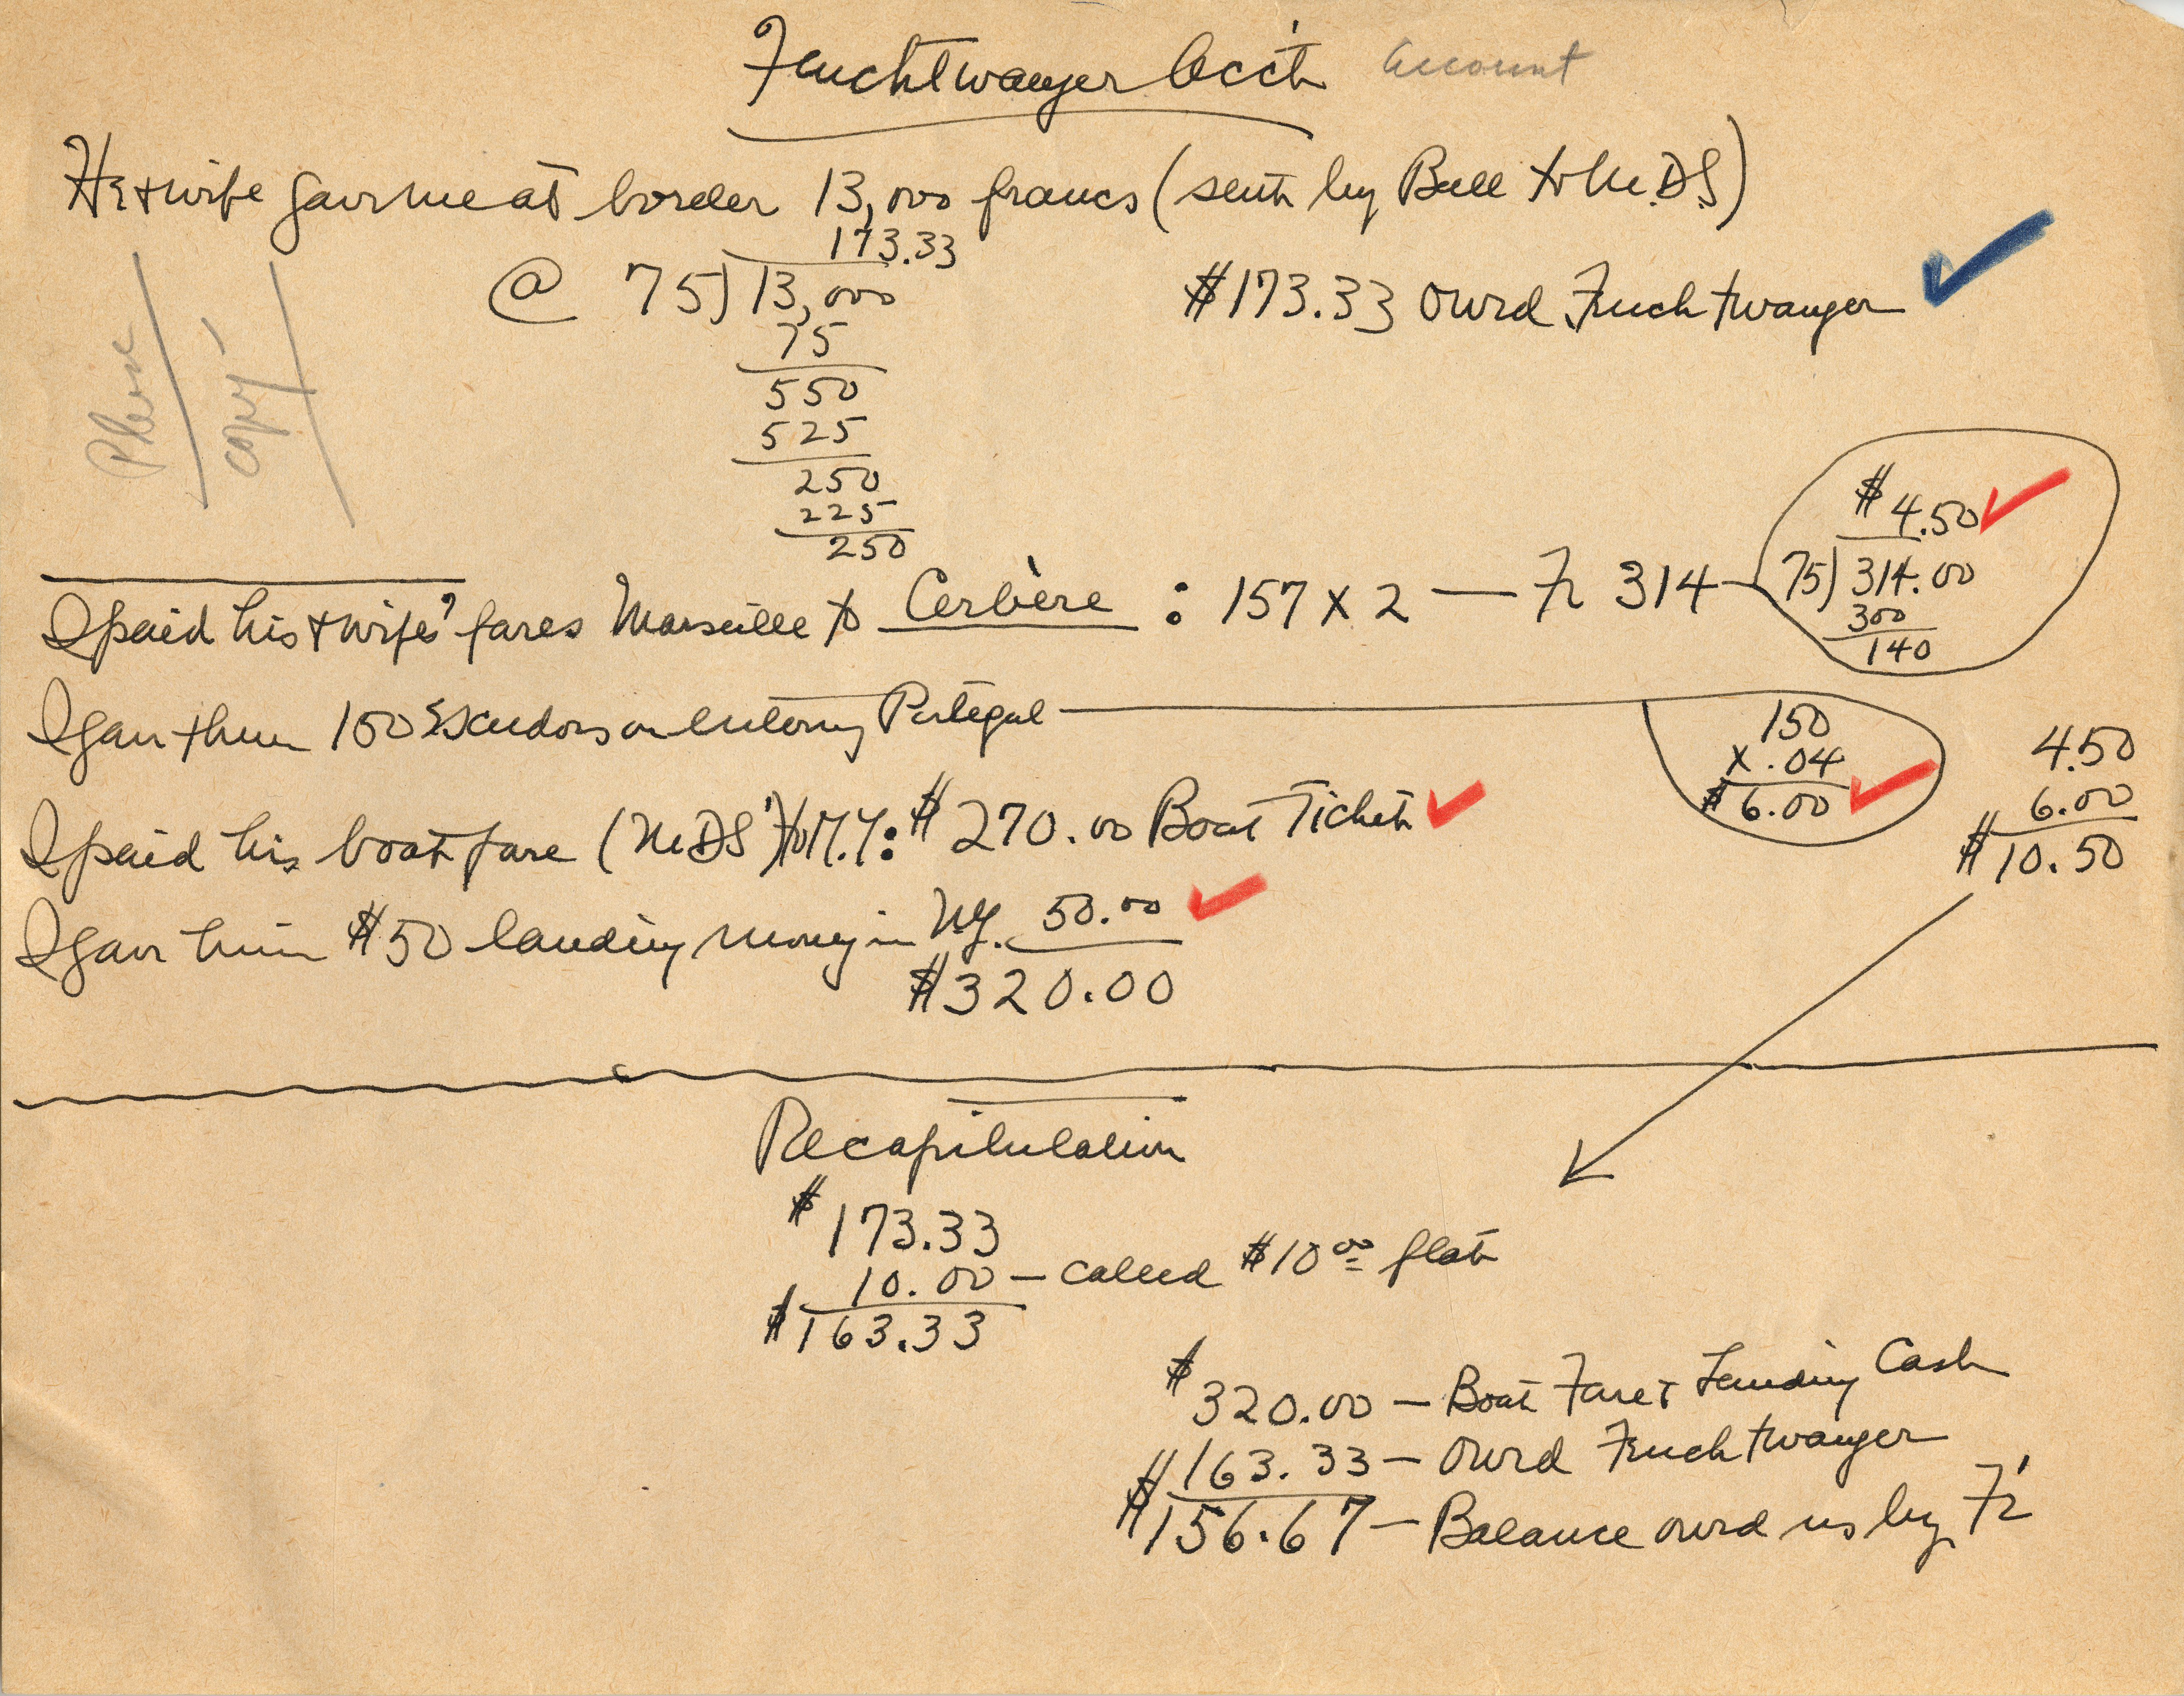 Feuchtwanger Acc't Account
He + wife gave me at border 13,000 francs (sent by Bill to Mrs. DS)
173.33
@ 75)13,000
75
550
525
250
225
250
$173.33 owed Feuchtwanger
Please
copy
I paid his + wife's fares Marseille to Cerbère : 157 x 2 — Fr 314
$4.50
75)314.00
300
140
I gave them 150 Escudos on entering Portugal
150
x .04
$6.00
4.50
6.00
$10.50
I paid his boat fare ( ) to N.Y: $270.00 Boat Ticket
I gave him $50 landing money in N.Y. 50.00
$320.00
Recapitulation
$173.33
10.00 — called $10.00 flat
$163.33
$320.00 — Boat Fare + Landing Cash
$163.33 — owed Feuchtwanger
$156.67 — Balance owed us by F'r